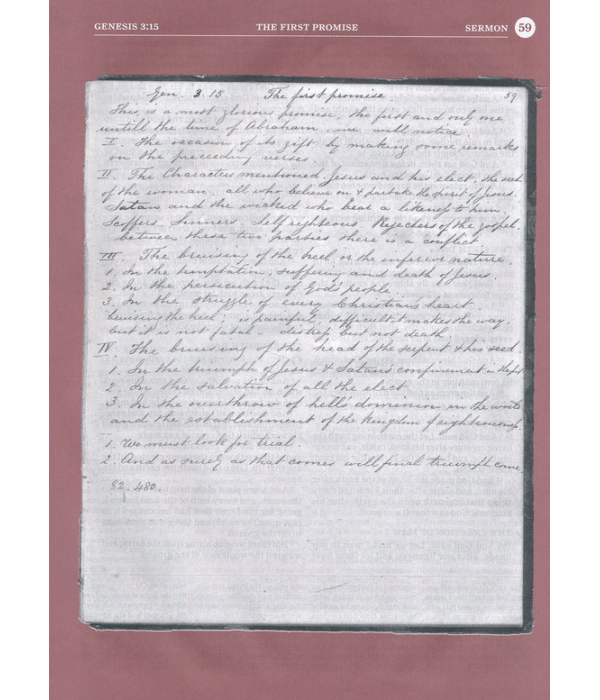 GENESIS 3:15 THE FIRST PROMISE SERMON 59
Gen. 3.15 The first promise 59
This is a most glorious promise, the first and only one
untill the time of Abraham we will notice
I. The occasion of its gift by making some remarks
on the preceeding verses.
II. The Characters mentioned, Jesus and his elect, the seed
of the woman, all who believe on & partake the spirit of Jesus.
Satan and the wicked who bear a likeness to him,
Scoffers, Sinners, Self righteous, Rejectors of the gospel.
between these two parties there is a conflict.
III. The bruising of the heel, or the inferior nature.
1. In the temptation, suffering and death of Jesus.
2. In the persecution of God's people
3. In the struggle of every Christian's heart.
bruising the heel, is painful, difficult it makes the way,
but it is not fatal - distress but not death
IV. The bruising of the head of the serpent & his seed.
1. In the triumph of Jesus & Satan's confinement in
2. In the salvation of all the elect.
3. In the overthrow of hell's dominion in the world
and the establishment of the kingdom of righteousness
1. We must look for trial.
2. And as surely as that comes will final triumph come.
82. 480.